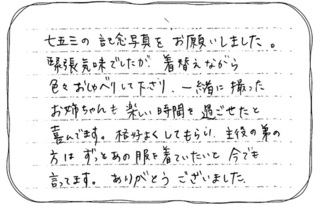 七五三の記念写真をお願いしました。
緊張気味でしたが着替えながら
色々おしゃべりして下さり、一緒に撮った
お姉ちゃんも楽しい時間を過ごせたと
喜んでます。格好よくしてもらい主役の弟の
方はずっとあの服を着ていたいと今でも
言ってます。ありがとうございました。